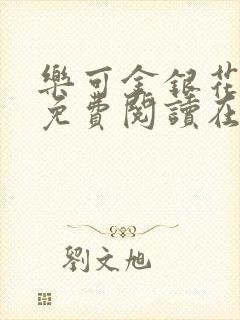 樂可金銀花
免費閱讀在
劉文旭